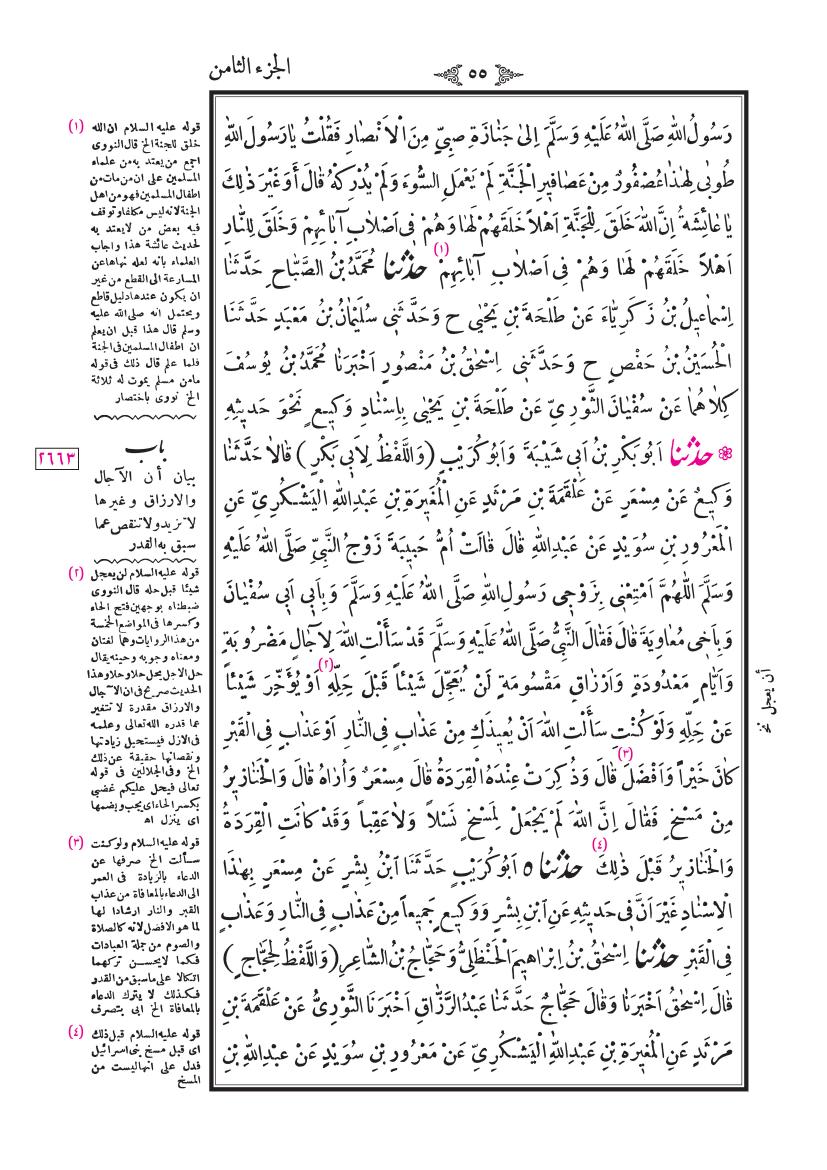 الجزء الثامن
٥٥
رَسُولُ اللهِ صَلَّى اللهُ عَلَيْهِ وَسَلَّمَ اِلىٰ جَنَازَةِ صَبِيٍّ مِنَ الْاَنْصَارِ فَقُلْتُ يَا رَسُولَ اللهِ
طُوبىٰ لِهٰذَا عُصْفُورٌ مِنْ عَصَافِيرِ الْجَنَّةِ لَمْ يَعْمَلِ السُّوءَ وَلَمْ يُدْرِكْهُ قَالَ أَوَ غَيْرَ ذٰلِكَ
يَا عَائِشَةُ اِنَّ اللهَ خَلَقَ لِلْجَنَّةِ اَهْلاً خَلَقَهُمْ لَهَا وَهُمْ فِى اَصْلَابِ آبَائِهِمْ وَخَلَقَ لِلنَّارِ
اَهْلاً خَلَقَهُمْ لَهَا وَهُمْ فِى اَصْلَابِ آبَائِهِمْ (١) حَدَّثَنَا مُحَمَّدُ بْنُ الصَّبَّاحِ حَدَّثَنَا
اِسْمَاعِيلُ بْنُ زَكَرِيَّاءَ عَنْ طَلْحَةَ بْنِ يَحْيٰى ح وَحَدَّثَنِى سُلَيْمَانُ بْنُ مَعْبَدٍ حَدَّثَنَا
الْحُسَيْنُ بْنُ حَفْصٍ ح وَحَدَّثَنِى اِسْحٰقُ بْنُ مَنْصُورٍ اَخْبَرَنَا مُحَمَّدُ بْنُ يُوسُفَ
كِلَاهُمَا عَنْ سُفْيَانَ الثَّوْرِيِّ عَنْ طَلْحَةَ بْنِ يَحْيٰى بِاِسْنَادِ وَكِيعٍ نَحْوَ حَدِيثِهِ
حَدَّثَنَا اَبُو بَكْرِ بْنُ اَبِى شَيْبَةَ وَاَبُو كُرَيْبٍ (وَاللَّفْظُ لِاَبِى بَكْرٍ) قَالَا حَدَّثَنَا
وَكِيعٌ عَنْ مِسْعَرٍ عَنْ عَلْقَمَةَ بْنِ مَرْثَدٍ عَنِ الْمُغِيرَةِ بْنِ عَبْدِ اللهِ الْيَشْكُرِيِّ عَنِ
الْمَعْرُورِ بْنِ سُوَيْدٍ عَنْ عَبْدِ اللهِ قَالَ قَالَتْ اُمُّ حَبِيبَةَ زَوْجُ النَّبِيِّ صَلَّى اللهُ عَلَيْهِ
وَسَلَّمَ اللّٰهُمَّ اَمْتِعْنِى بِزَوْجِى رَسُولِ اللهِ صَلَّى اللهُ عَلَيْهِ وَسَلَّمَ وَبِاَبِى اَبِى سُفْيَانَ
وَبِاَخِى مُعَاوِيَةَ قَالَ فَقَالَ النَّبِيُّ صَلَّى اللهُ عَلَيْهِ وَسَلَّمَ قَدْ سَأَلْتِ اللهَ لِآجَالٍ مَضْرُوبَةٍ
وَاَيَّامٍ مَعْدُودَةٍ وَاَرْزَاقٍ مَقْسُومَةٍ لَنْ يُعَجِّلَ شَيْئاً قَبْلَ حِلِّهِ (٢) اَوْ يُؤَخِّرَ شَيْئاً
عَنْ حِلِّهِ وَلَوْ كُنْتِ سَأَلْتِ اللهَ اَنْ يُعِيذَكِ مِنْ عَذَابٍ فِى النَّارِ اَوْ عَذَابٍ فِى الْقَبْرِ
كَانَ خَيْراً وَاَفْضَلَ (٣) قَالَ وَذُكِرَتْ عِنْدَهُ الْقِرَدَةُ قَالَ مِسْعَرٌ وَاُرَاهُ قَالَ وَالْخَنَازِيرُ
مِنْ مَسْخٍ فَقَالَ اِنَّ اللهَ لَمْ يَجْعَلْ لِمَسْخٍ نَسْلاً وَلَا عَقِباً وَقَدْ كَانَتِ الْقِرَدَةُ
وَالْخَنَازِيرُ قَبْلَ ذٰلِكَ (٤) حَدَّثَنَا ٥ اَبُو كُرَيْبٍ حَدَّثَنَا ابْنُ بِشْرٍ عَنْ مِسْعَرٍ بِهٰذَا
الْاِسْنَادِ غَيْرَ اَنَّ فِى حَدِيثِهِ عَنِ ابْنِ بِشْرٍ وَوَكِيعٍ جَمِيعاً مِنْ عَذَابٍ فِى النَّارِ وَعَذَابٍ
فِى الْقَبْرِ حَدَّثَنَا اِسْحٰقُ بْنُ اِبْرَاهِيمَ الْحَنْظَلِيُّ وَحَجَّاجُ بْنُ الشَّاعِرِ (وَاللَّفْظُ لِحَجَّاجٍ)
قَالَ اِسْحٰقُ اَخْبَرَنَا وَقَالَ حَجَّاجٌ حَدَّثَنَا عَبْدُ الرَّزَّاقِ اَخْبَرَنَا الثَّوْرِيُّ عَنْ عَلْقَمَةَ بْنِ
مَرْثَدٍ عَنِ الْمُغِيرَةِ بْنِ عَبْدِ اللهِ الْيَشْكُرِيِّ عَنْ مَعْرُورِ بْنِ سُوَيْدٍ عَنْ عَبْدِ اللهِ بْنِ
أن يعجل نخ
(١) قوله عليه السلام ان الله
خلق للجنة الخ قال النووى
اجمع من يعتد به من علماء
المسلمين على ان من مات من
اطفال المسلمين فهو من اهل
الجنة لانه ليس مكلفا وتوقف
فيه بعض من لا يعتد به
لحديث عائشة هذا واجاب
العلماء بانه لعله نهاها عن
المسارعة الى القطع من غير
ان يكون عندها دليل قاطع
ويحتمل انه صلى الله عليه
وسلم قال هذا قبل ان يعلم
ان اطفال المسلمين فى الجنة
فلما علم قال ذلك فى قوله
مامن مسلم يموت له ثلاثة
الخ نووى باختصار
باب
٢٦٦٣
بيان أن الآجال
والارزاق وغيرها
لا تزيد ولا تنقص عما
سبق به القدر
(٢) قوله عليه السلام لن يعجل
شيئا قبل حله قال النووى
ضبطناه بوجهين فتح الحاء
وكسرها فى المواضع الخمسة
من هذا الروايات وهما لغتان
ومعناه وجوبه وحينه يقال
حل الاجل يحل حلا وحلا وهذا
الحديث صريح فى ان الآجال
والارزاق مقدرة لا تتغير
عما قدره الله تعالى وعلمه
فى الازل فيستحيل زيادتها
ونقصانها حقيقة عن ذلك
الخ وفى الجلالين فى قوله
تعالى فيحل عليكم غضبى
بكسر الحاء اى يجب وبضمها
اى ينزل اه
(٣) قوله عليه السلام ولو كنت
سألت الخ صرفها عن
الدعاء بالزيادة فى العمر
الى الدعاء بالمعافاة من عذاب
القبر والنار ارشادا لها
لما هو الافضل لانه كالصلاة
والصوم من جملة العبادات
فكما لا يحسن تركهما
اتكالا على ما سبق من القدر
فكذلك لا يترك الدعاء
بالمعافاة الخ ابى بتصرف
(٤) قوله عليه السلام قبل ذلك
اى قبل مسخ بنى اسرائيل
فدل على انها ليست من
المسخ